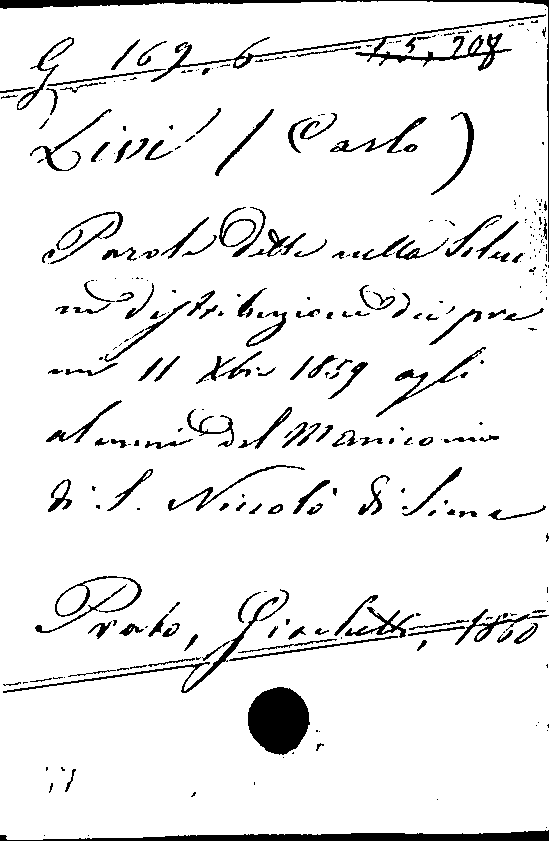 G 169.6 1,5,208
Livi (Carlo)
Parole dette nella Solen
ne distribuzione dei pre
mi 11 Xbre 1859 agli
alunni del Manicomio
di S. Niccolò di Siena
Prato, Giachetti, 1860